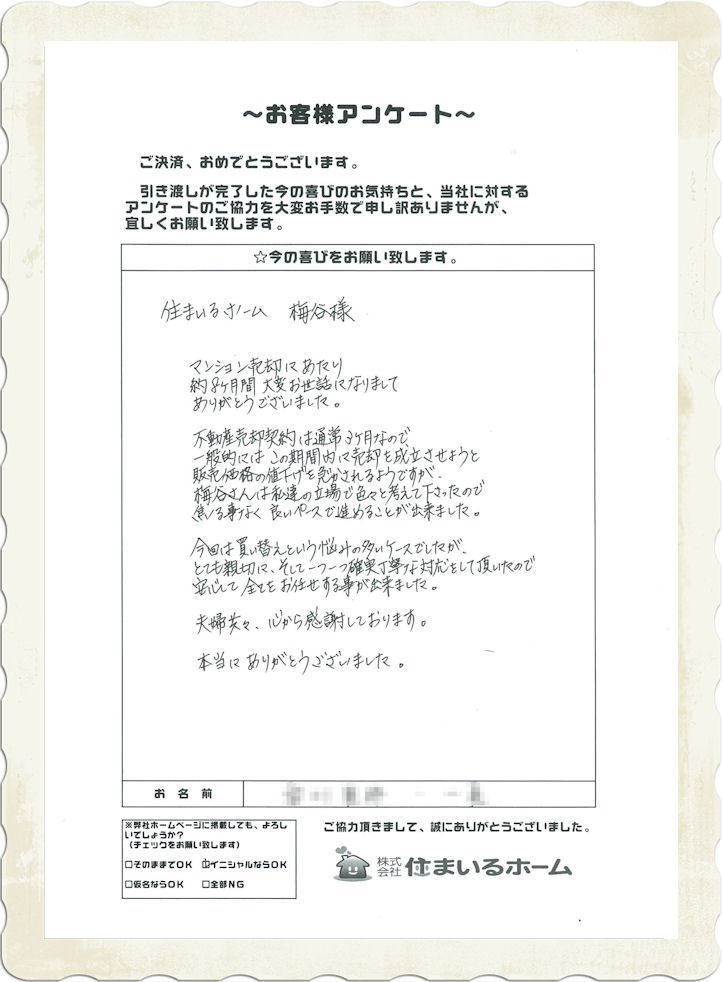 ～お客様アンケート～
ご決済、おめでとうございます。
引き渡しが完了した今の喜びのお気持ちと、当社に対する
アンケートのご協力を大変お手数で申し訳ありませんが、
宜しくお願い致します。
☆今の喜びをお願い致します。
住まいるホーム 梅谷様
マンション売却にあたり
約8ヶ月間 大変お世話になりまして
ありがとうございました。
不動産売却契約は通常3ヶ月なので、
一般的には この期間内に売却を成立させようと
販売価格の値下げを急かされるようですが、
梅谷さんは私達の立場で色々と考えて下さったので
焦る事なく 良いペースで進めることが出来ました。
今回は買い替えという悩みの多いケースでしたが、
とても親切に、そして一つ一つ確実丁寧な対応をして頂いたので
安心して 全てをお任せする事が出来ました。
夫婦共々、心から感謝しております。
本当に ありがとうございました。
お名前
※弊社ホームページに掲載しても、よろし
いでしょうか？
（チェックをお願い致します）
□そのままでOK □イニシャルならOK
□仮名ならOK □全部NG
ご協力頂きまして、誠にありがとうございました。
株式会社 住まいるホーム